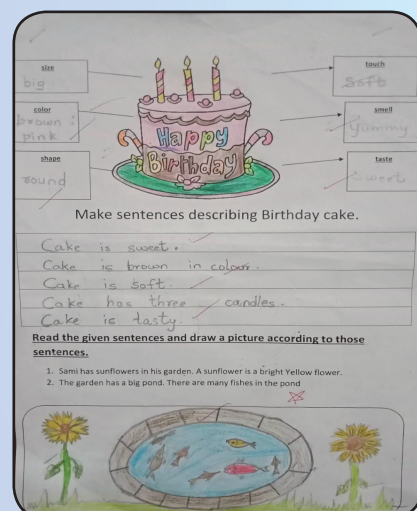 size
big
color
brown :
pink
shape
round
touch
soft
smell
yummy
taste
sweet
Happy
Birthday
Make sentences describing Birthday cake.
Cake is sweet.
Cake is brown in colour.
Cake is soft.
Cake has three candles.
Cake is tasty.
Read the given sentences and draw a picture according to those
sentences.
1. Sami has sunflowers in his garden. A sunflower is a bright Yellow flower.
2. The garden has a big pond. There are many fishes in the pond